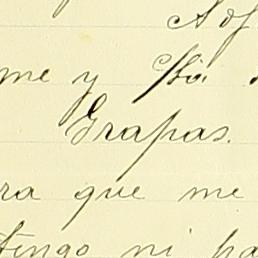 me y
Grapas.
ra que me
tengo ni pa